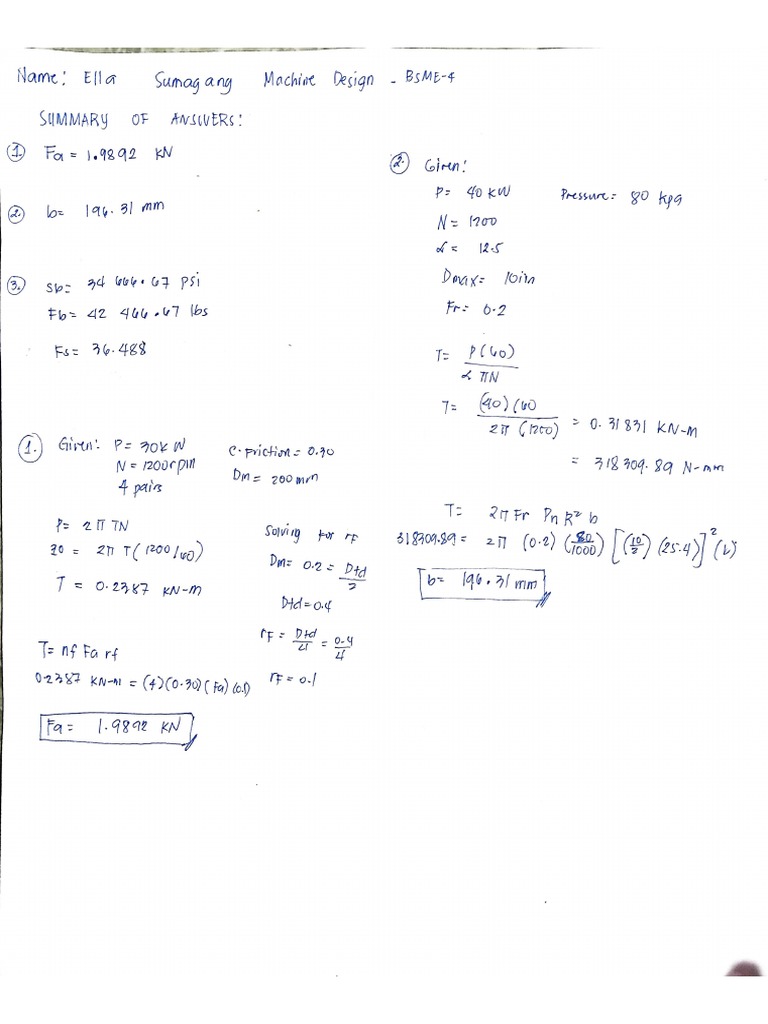 Name: Ella Sumagang Machine Design - BSME-4
SUMMARY OF ANSWERS:
1. Fa = 1.9892 KN
2. b= 196.31 mm
3. Sb= 34 666.67 psi
Fb= 42 466.67 lbs
Fs= 36.488
1. Given: P= 30KW
N = 1200rpm
4 pairs
C. friction = 0.30
Dm = 200 mm
P= 2π TN
30 = 2π T (1200/60)
T = 0.2387 KN-m
Solving for rf
Dm= 0.2 = D+d/2
D+d = 0.4
rF = D+d/4 = 0.4/4
rF = 0.1
T= nf Fa rf
0.2387 KN-m = (4)(0.30)(Fa)(0.1)
Fa= 1.9892 KN
2. Given:
P= 40 KW Pressure = 80 kpa
N = 1200
α = 12.5
Dmax= 10in
Fr= 0.2
T= P(60)/2 πN
T= (40)(60)/2π (1200) = 0.31831 KN-m
= 318309.89 N-mm
T= 2π Fr Pn R² b
318309.89 = 2π (0.2) (80/1000) [(10/2) (25.4)]² (b)
b= 196.31 mm